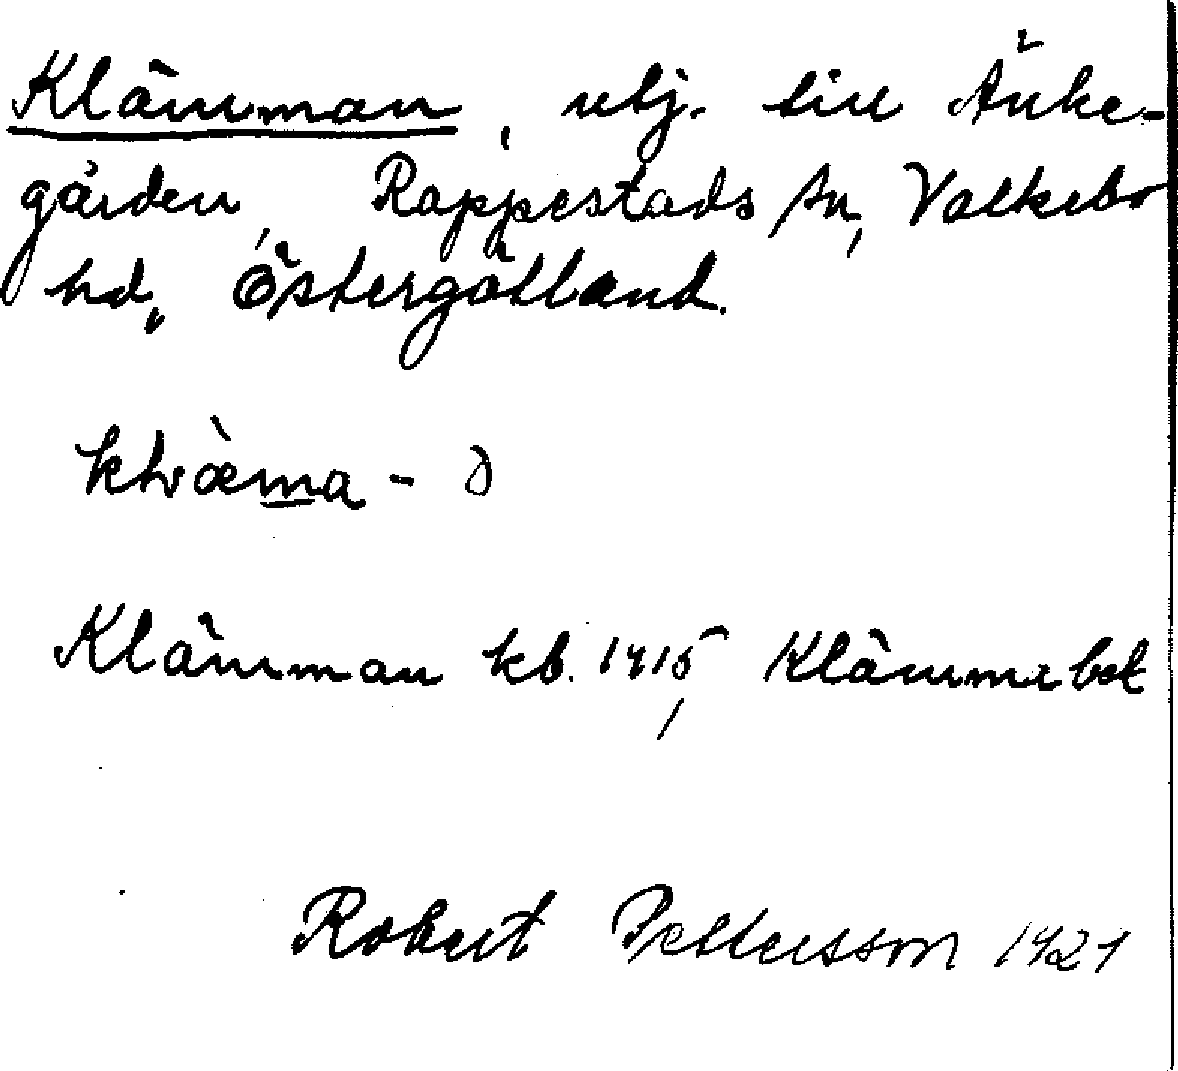 Klämman, utj. till Änke-
gården, Rappestads sn, Valkebo
hd, Östergötland.
klvæ̀ma - ∂
Klämman kb. 1915, Klämmebet
Robert Pettersson 1921